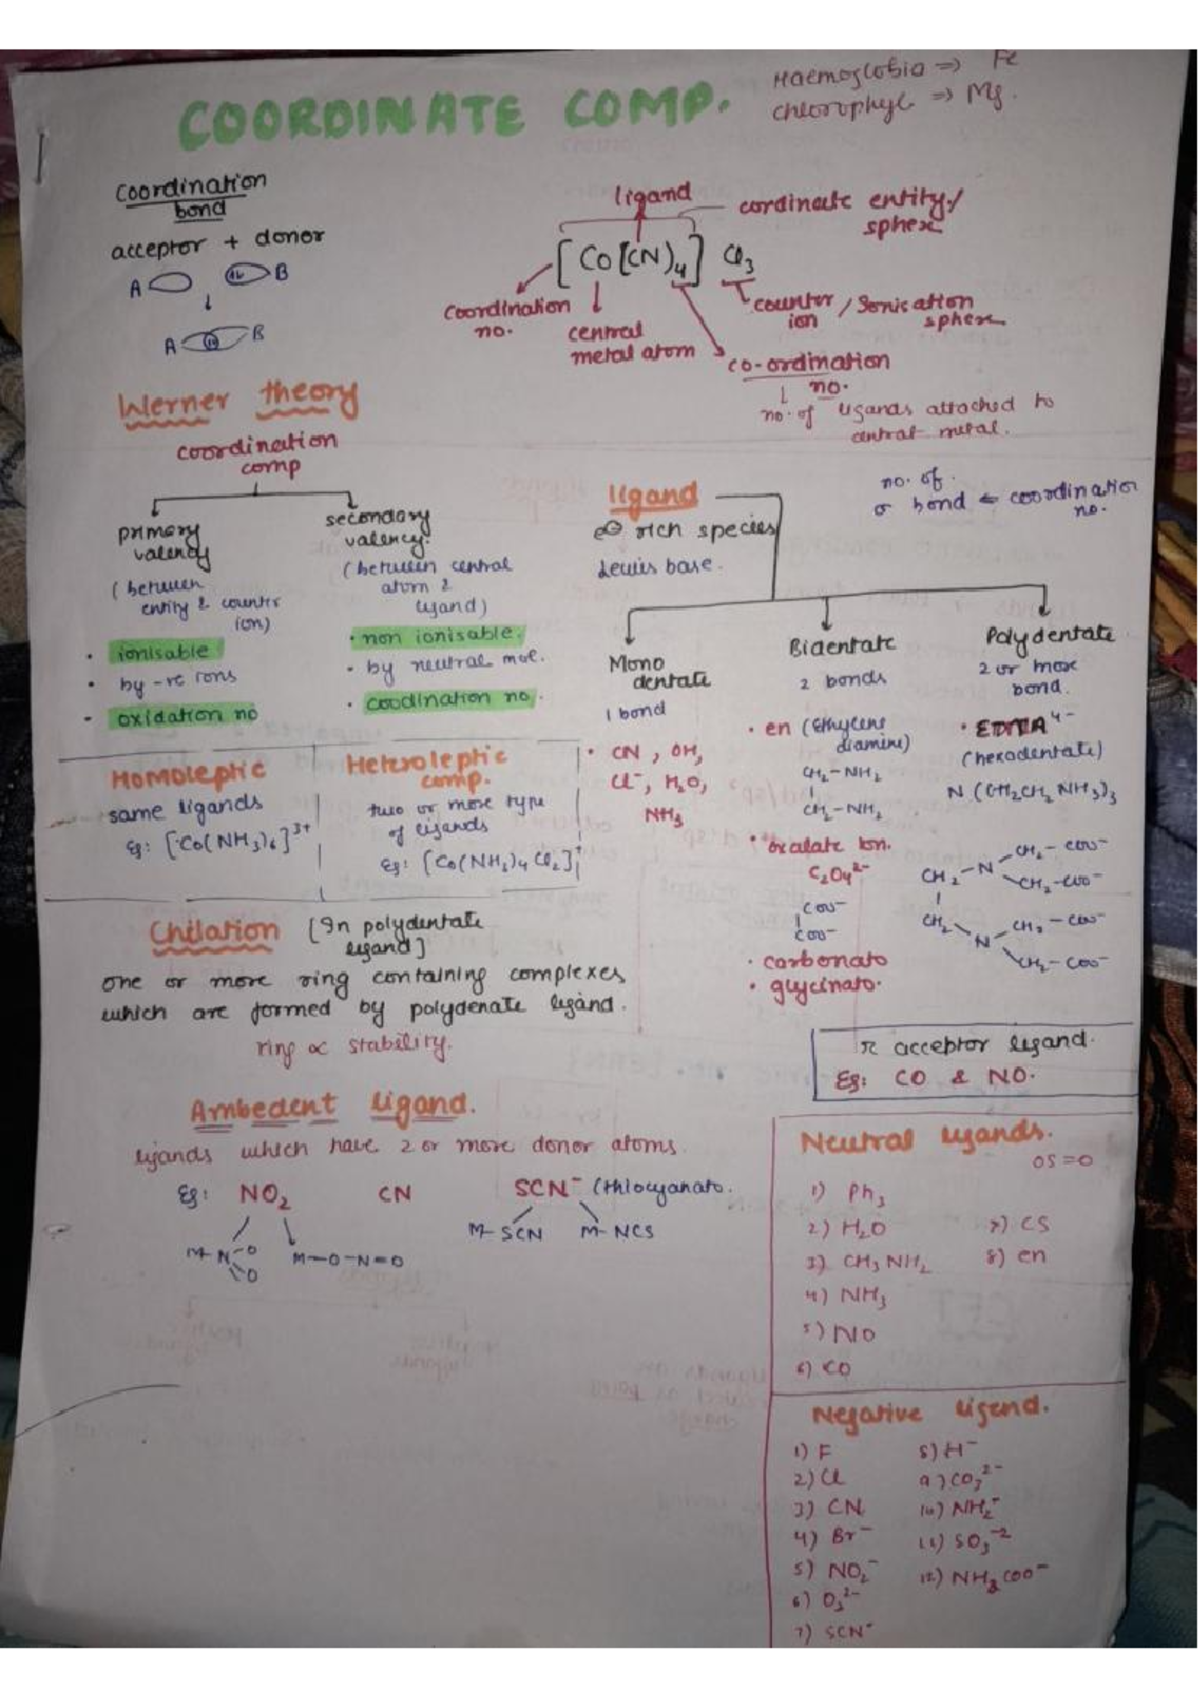 COORDINATE COMP.
Haemoglobin ⇒ Fe
chlorophyl ⇒ Mg.
coordination
bond
acceptor + donor
A B
↓
A B
ligand
cordinate entity/
sphere
[Co[CN)4] Cl3
coordination
no.
central
metal atom
counter / Ionisation
ion sphere
co-ordination
no.
↓
no. of ligands attached to
central metal.
Werner theory
coordination
comp
primary
valency
(between
entity & counter
ion)
• ionisable
• by -ve ions
- oxidation no
secondary
valency.
(between central
atom &
ligand)
• non ionisable.
• by neutral mol.
• coodination no.
ligand
e⊖ rich species
Lewis base.
no. of
σ bond = coordination
no.
Mono
dentate
1 bond
• CN, OH,
Cl-, H2O,
NH3
Bidentate
2 bonds
• en (Ethylene
diamine)
CH2-NH2
|
CH2-NH2
• oxalate ion.
C2O4 2-
COO-
|
COO-
• carbonato
• glycinato.
Polydentate
2 or more
bond.
• EDTA 4-
(hexadentate)
N(CH2CH2NH3)3
CH2-N
CH2-COO-
CH2-COO-
|
CH2
N
CH2-COO-
CH2-COO-
Homoleptic
same ligands
Eg: [Co(NH3)6]3+
Heteroleptic
comp.
two or more type
of ligands
Eg: [Co(NH3)4Cl2]+
Chilation [In polydentate
ligand]
one or more ring containing complexes
which are formed by polydenate ligand.
ring ∝ stability.
π acceptor ligand.
Eg: CO & NO.
Ambedent ligand.
ligands which have 2 or more donor atoms.
Eg: NO2 CN SCN- (thiocyanato.
M-N O O
M-O-N=O
M-SCN M-NCS
Neutral ligands.
OS=0
1) Ph3
2) H2O
3) CH3NH2
4) NH3
5) NO
6) CO
7) CS
8) en
Negative ligend.
1) F
2) Cl
3) CN
4) Br-
5) NO2-
6) O3 2-
7) SCN-
8) H-
9) CO3 2-
10) NH2-
11) SO3 -2
12) NH2COO-